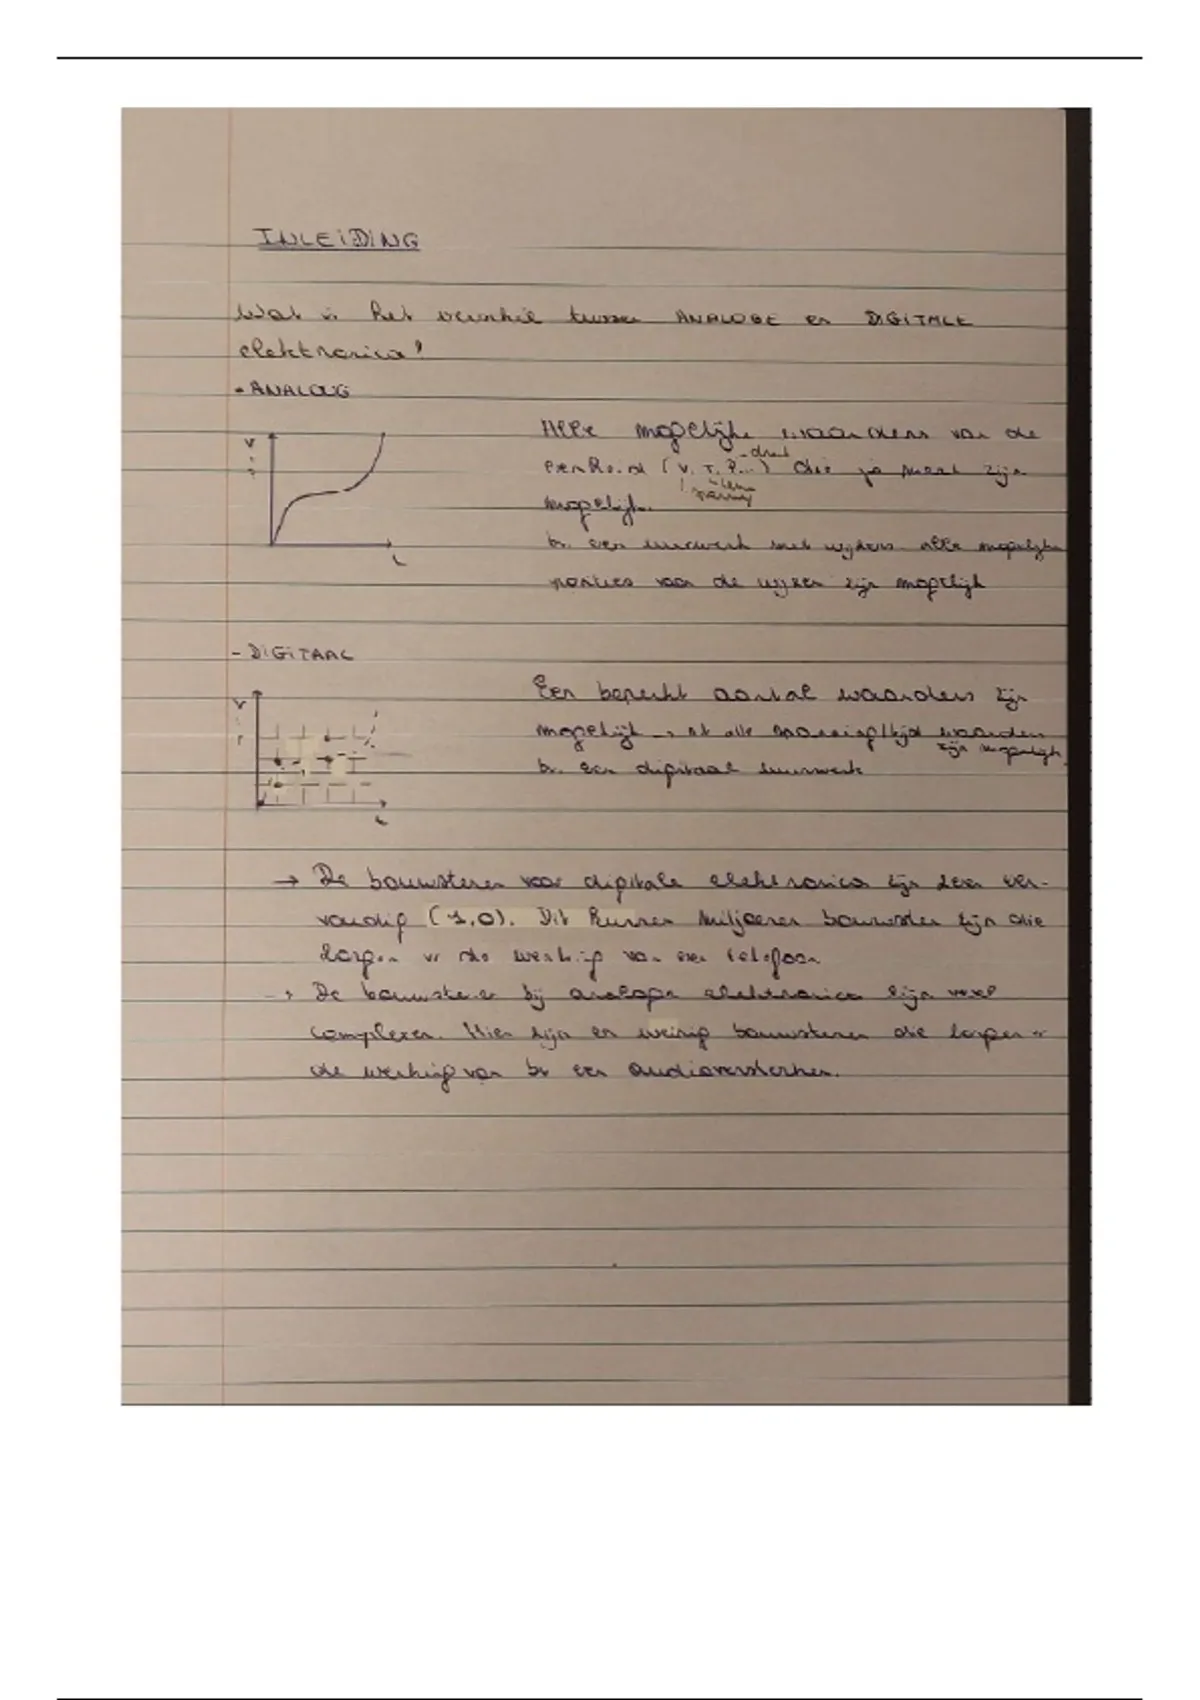 INLEIDING
Wat is het verschil tussen ANALOGE en DIGITALE
elektronica?
- ANALOOG
V
t
Alle mogelijke waarden van de
eenheid (V, T, P...) die je meet zijn
druk
spanning
mogelijk.
bv. een uurwerk met wijzers alle mogelijke
posities van de wijzer zijn mogelijk
- DIGITAAL
V
t
Een beperkt aantal waarden zijn
mogelijk → alle waarden
zijn mogelijk
bv. Een digitaal uurwerk
→ De bouwstenen voor digitale elektronica zijn zeer een-
voudig (1,0). Dit kunnen miljoenen bouwstenen zijn die
zorgen vr de werking van een telefoon
→ De bouwstenen bij analoge elektronica zijn veel
complexer. Hier zijn er weinig bouwstenen die zorgen vr
de werking van bv een audioversterker.